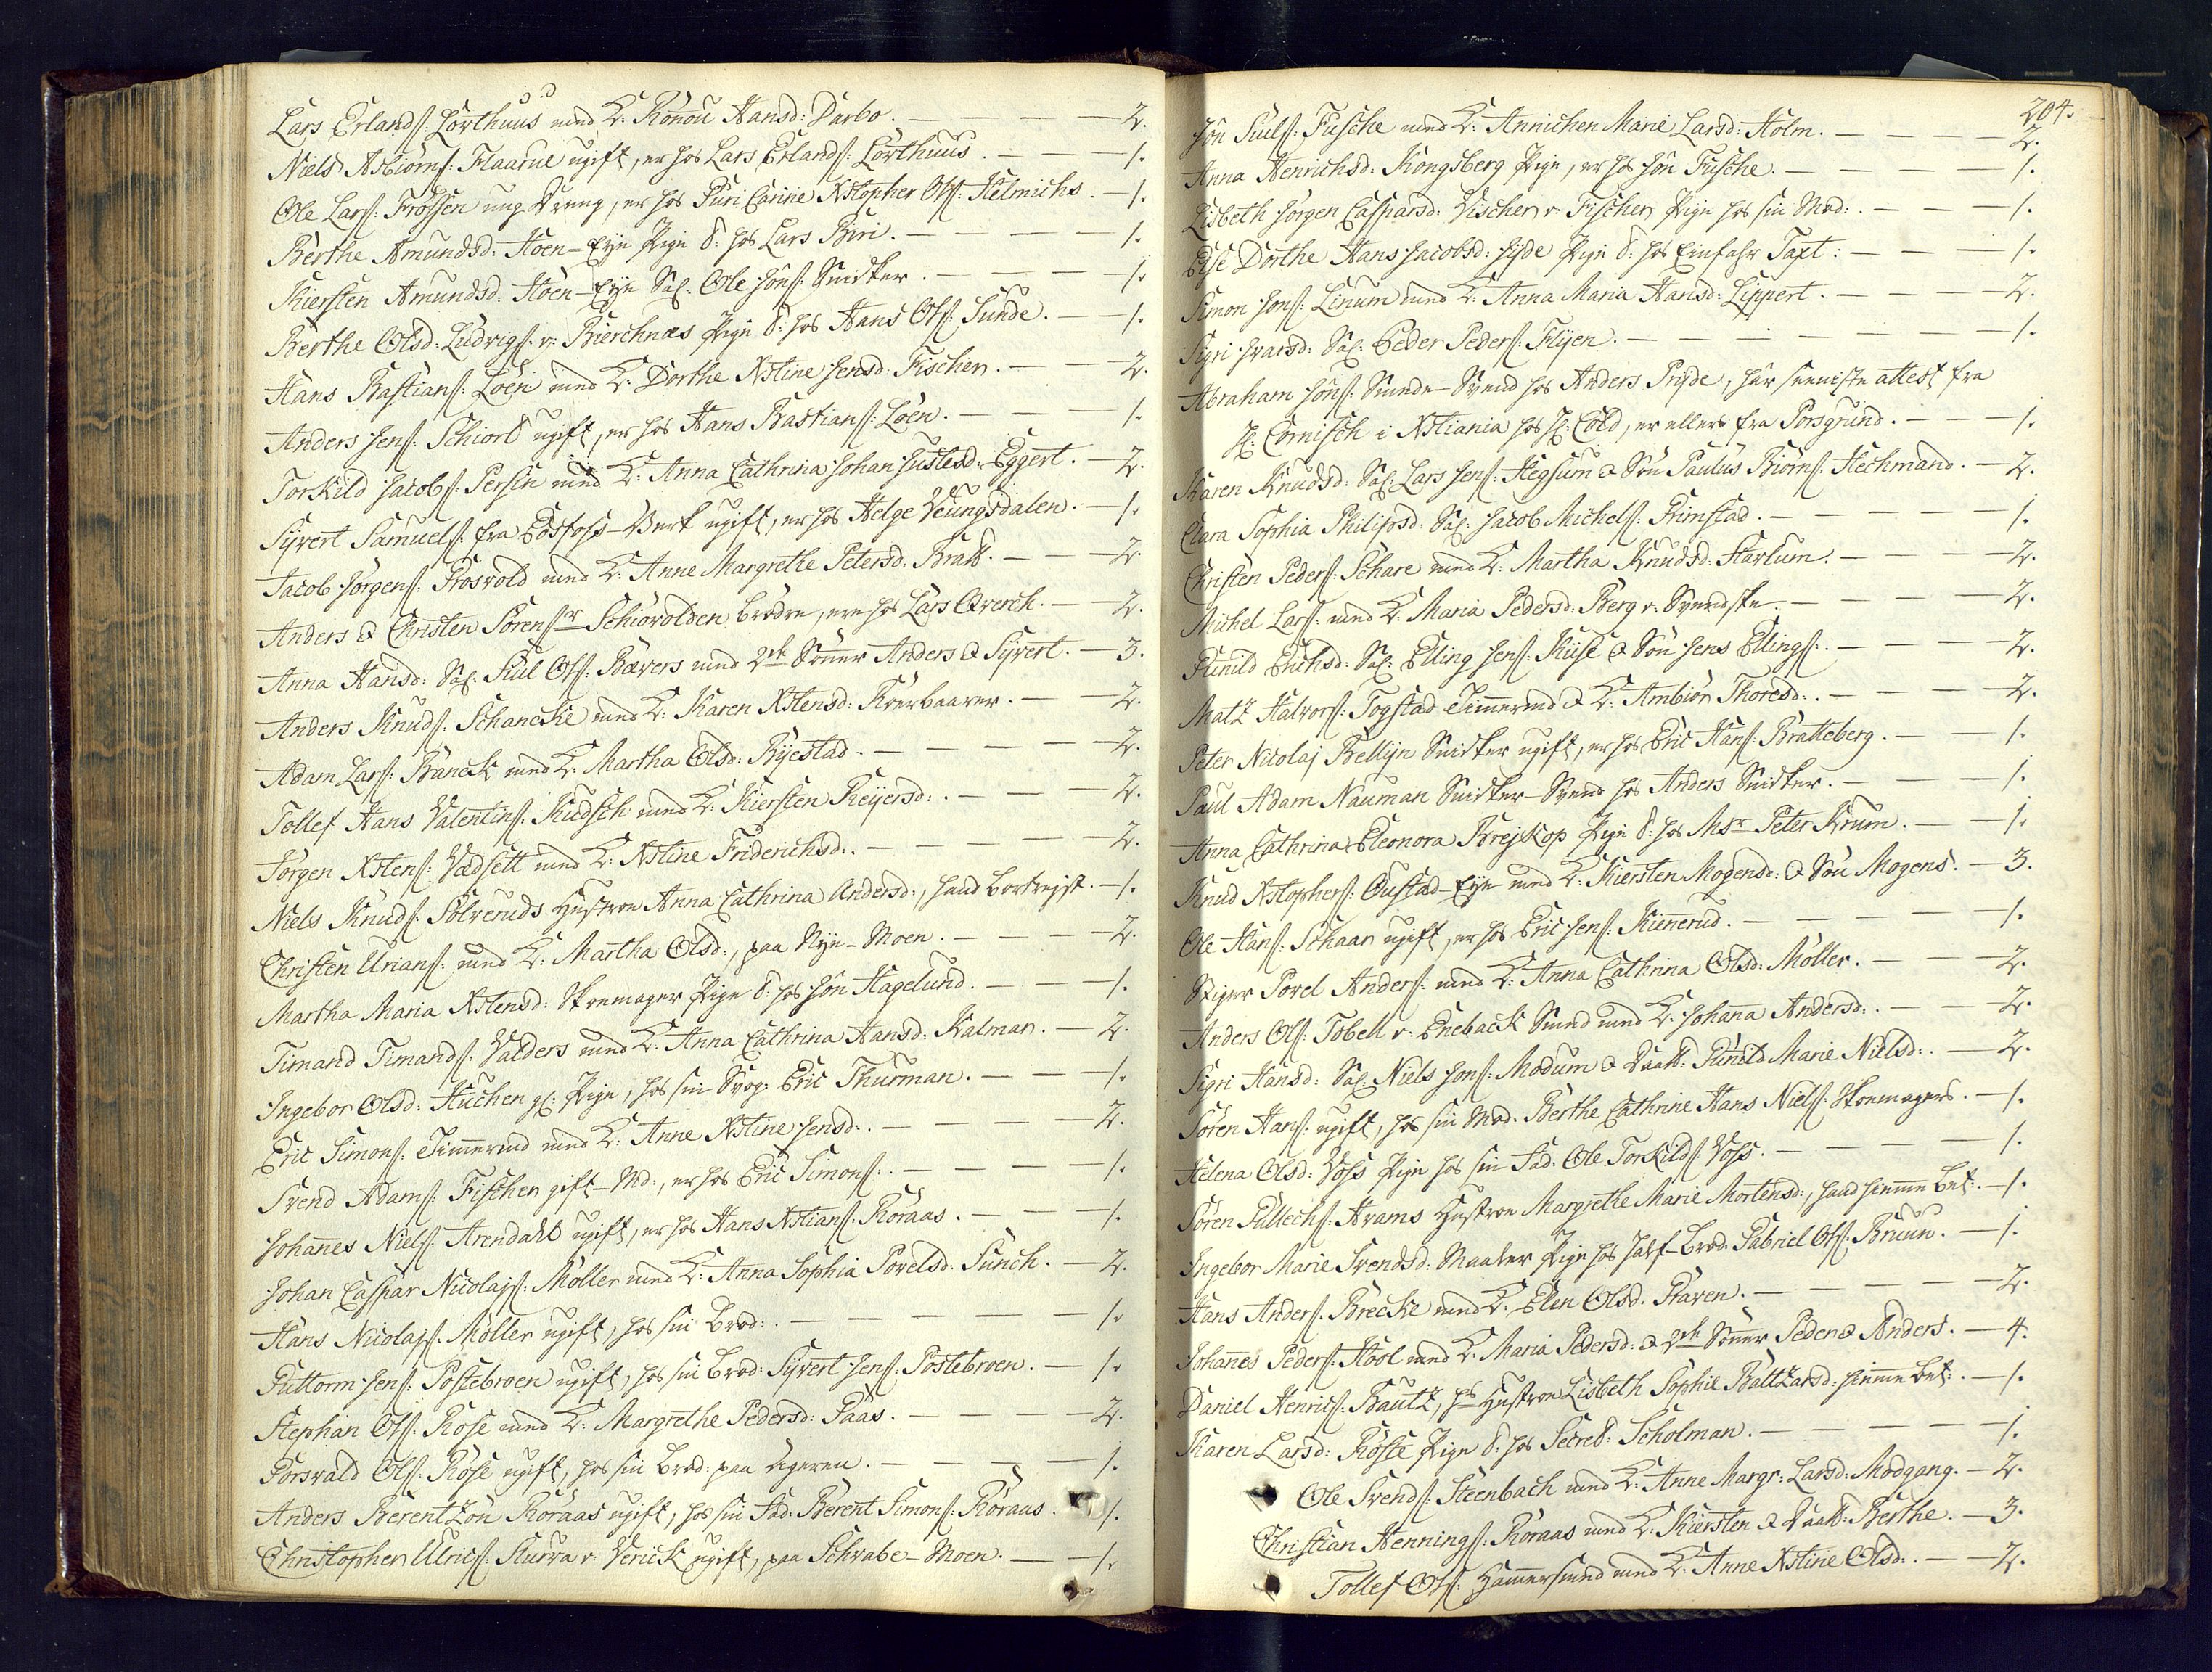 Lars Erlandſ: Lørthuus med K: Rønnou Hansd: Darbo. — 2.
Niels Asbiørnſ: Flaarue ugift, er hos Lars Erlandſ: Lørthuus. — 1.
Ole Larſ: Frossen ung Dreng, er hos Guri Carine Xstopher Olſ: Helmichs. — 1.
Berthe Amundsd: Hoen-Eje Pige t: hos Lars Buri. — 1.
Kiersten Amundsd: Hoen-Eje Sal: Ole Jonſ: Snidker. — 1.
Berthe Olsd: Ludvigſ: v: Bierchnæs Pige t: hos Hans Olſ: Sunde. — 1.
Hans Bastianſ: Loen med K: Dorthe Xstine Jensd: Fischer. — 2.
Anders Jenſ: Schiort ugift, er hos Hans Bastianſ: Loen. — 1.
Torkild Jacobſ: Persin med K: Anna Cathrina Johan Justesd: Eggert. — 2.
Syvert Samuelſ: fra Edsfoss-Verk ugift, er hos Helge Veungsdalen. — 1.
Jacob Jørgenſ: Prosvold med K: Anne Margrethe Petersd: Bratt. — 2.
Anders & Christen Sørenſr Schiorolden brødre, ere hos Lars Qverch. — 2.
Anna Hansd: Sal: Juel Olſ: Bævers med 2de Sønner Anders & Syvert. — 3.
Anders Knudſ: Schancke med K: Karen Xstensd: Kærbaarer. — 2.
Adam Larſ: Banck med K: Martha Olsd: Ryestad. — 2.
Tollef Hans Valentinſ: Kudsch med K: Kiersten Reyersd:. — 2.
Jørgen Xstenſ: Vedsett med K: Xstine Friderichsd:. — 2.
Niels Knudſ: Sølveruds Hustroe Anna Cathrina Andersd:, hand bortrejst. — 1.
Christen Urianſ: med K: Martha Olsd:, paa Nye-Moen. — 2.
Martha Maria Xstensd: Skoemager Pige t: hos Jon Hagelund. — 1.
Timand Timandſ: Valders med K: Anna Cathrina Hansd: Kalman. — 2.
Ingebor Olsd: Huchen gl: Pige, hos sin Svog: Eric Thurman. — 1.
Eric Simonſ: Timermd med K: Anne Xstine Jensd:. — 2.
Svend Adamſ: Fischer gift-Md:, er hos Eric Simonſ:. — 1.
Johannes Nielſ: Arendahl ugift, er hos Hans Xstianſ: Roraas. — 1.
Johan Caspar Nicolajſ: Møller med K: Anna Sophia Povelsd: Funch. — 2.
Hans Nicolajſ: Møller ugift, hos sin Brod:. — 1.
Guttorm Jenſ: Postebroen ugift, hos sin Brod: Syvert Jenſ: Postebroen. — 1.
Stephan Olſ: Rose med K: Margrethe Pedersd: Paas. — 2.
Torsvald Olſ: Rose ugift, hos sin Brod: paa Ageren. — 1.
Anders Berentzøn Roraas ugift, hos sin Fad: Berent Simonſ: Roraas. 1.
Christopher Ulricſ: Hurra v: Verick ugift, paa Schrabe-Moen. — 1.
204.
Jon Juulſ: Fusche med K: Annichen Marie Larsd: Holm. — 2.
Anna Henrichsd: Kongsberg Pige, er hos Jon Fusche. — 1.
Lisbeth Jørgen Casparsd: Vischer v: Fischer Pige hos sin Mod:. — 1.
Else Dorthe Hans Jacobsd: Hyde Pige t: hos Einfahr Taxt: — 1.
Simon Jonſ: Linum med K: Anna Maria Hansd: Lippert. — 2.
Sigri Ivarsd: Sal: Peder Pederſ: Flyen. — 1.
Abraham Jonſ: Smede-Svend hos Anders Pryde, har seeniste attest fra
H: Cornisch i Xstiania hos H: Cold, er ellers fra Porsgrund. — 1.
Karen Knudsd: Sal: Lars Jenſ: Hegsum & Søn Paulus Biørnſ: Hechmand. — 2.
Clara Sophia Philipsd: Sal: Jacob Michelſ: Grimstad. — 1.
Christen Pederſ: Schare med K: Martha Knudsd: Harlum. — 2.
Michel Larſ: med K: Maria Pedersd: Berg v: Svendske. — 2.
Gunild Erichsd: Sal: Elling Jenſ: Kuse & Søn Jens Ellingſ:. — 2.
Matz Halvorſ: Togstad Timermd & K: Ambior Thoresd:. — 2.
Peter Nicolaj Bellyn Snidker ugift, er hos Eric Hanſ: Bratteberg. — 1.
Paul Adam Nauman Snidker-Svend hos Anders Snidker. — 1.
Anna Cathrina Eleonora Brejkop Pige t: hos Msr Peter Krum. — 1.
Knud Xstopherſ: Gustad-Eje med K: Kiersten Mogensd: & Søn Mogens. — 3.
Ole Hanſ: Schaar ugift, er hos Eric Jenſ: Kiennerud. — 1.
Stiger Povel Anderſ: med K: Anna Cathrina Olsd: Møller. — 2.
Anders Olſ: Tobell v: Eneback Smed med K: Johanna Andersd:. — 2.
Sigri Hansd: Sal: Niels Jonſ: Modum & Daatt: Gunild Marie Nielsd:. — 2.
Søren Hanſ: ugift, hos sin Mod: Berthe Cathrine Hans Nielſ: Skoemagers. — 1.
Helena Olsd: Voss Pige hos sin Fad: Ole Torkildſ: Voss. — 1.
Søren Gullechſ: Arams Hustroe Margrethe Marie Mortensd:, hand hiemme bet:. — 1.
Ingebor Marie Svendsd: Maaler Pige hos Half-Brod: Gabriel Olſ: Bruun. — 1.
Hans Anderſ: Brecke med K: Elen Olsd: Raven. — 2.
Johannes Pederſ: Hool med K: Maria Pedersd: & 2de Sønner Peder & Anders. — 4.
Daniel Henricſ: Bautz, hs Hustroe Lisbeth Sophie Baltzarsd: hiemme bet:. — 1.
Karen Larsd: Roste Pige t: hos Secret: Scholman. — 1.
Ole Svendſ: Steenbach med K: Anne Margr: Larsd: Modgang. — 2.
Christian Henningſ: Roraas med K: Kiersten & Daatt: Berthe. — 3.
Tollef Olſ: Hammersmed med K: Anne Xstine Olsd:. — 2.